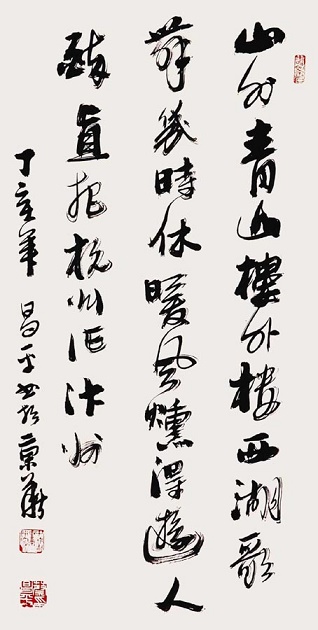 山外青山樓外樓西湖歌
舞幾時休暖風燻得遊人
醉直把杭州作汴州
丁亥年 昌平書於